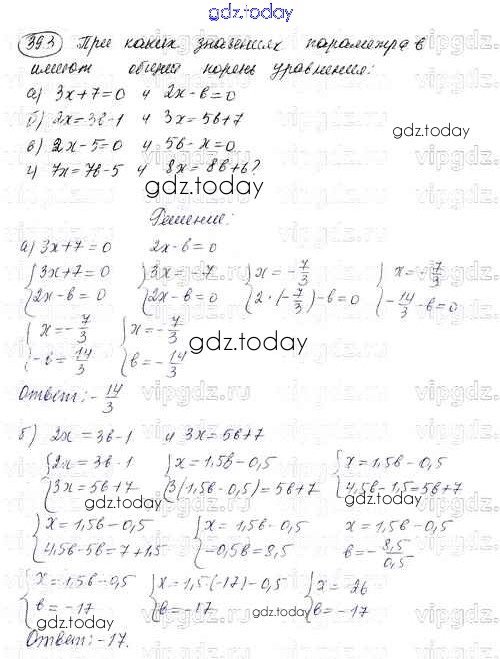 gdz.today
393 При каких значениях параметра в
имеют общий корень уравнения:
а) 3x+7=0 и 2x-в=0
б) 2x=3в-1 и 3x=5в+7
в) 2x-5=0 и 5в-x=0
г) 7x=7в-5 и 8x=8в+6?
gdz.today
gdz.today
Решение:
а) 3x+7=0 2x-в=0
{3x+7=0 {3x=-7 {x=-7/3 {x=-7/3
{2x-в=0 {2x-в=0 {2·(-7/3)-в=0 {-14/3-в=0
{x=-7/3 {x=-7/3
{-в=14/3 {в=-14/3
gdz.today
Ответ: -14/3
б) 2x=3в-1 и 3x=5в+7
{2x=3в-1 {x=1,5в-0,5 {x=1,5в-0,5
{3x=5в+7 {3(1,5в-0,5)=5в+7 {4,5в-1,5=5в+7
gdz.today
gdz.today
{x=1,5в-0,5 {x=1,5в-0,5 x=1,5в-0,5
{4,5в-5в=7+1,5 {-0,5в=8,5 в=-8,5/0,5
{x=1,5в-0,5 {x=1,5(-17)-0,5 {x=-26
{в=-17 {в=-17 {в=-17
gdz.today
gdz.today
Ответ: -17.